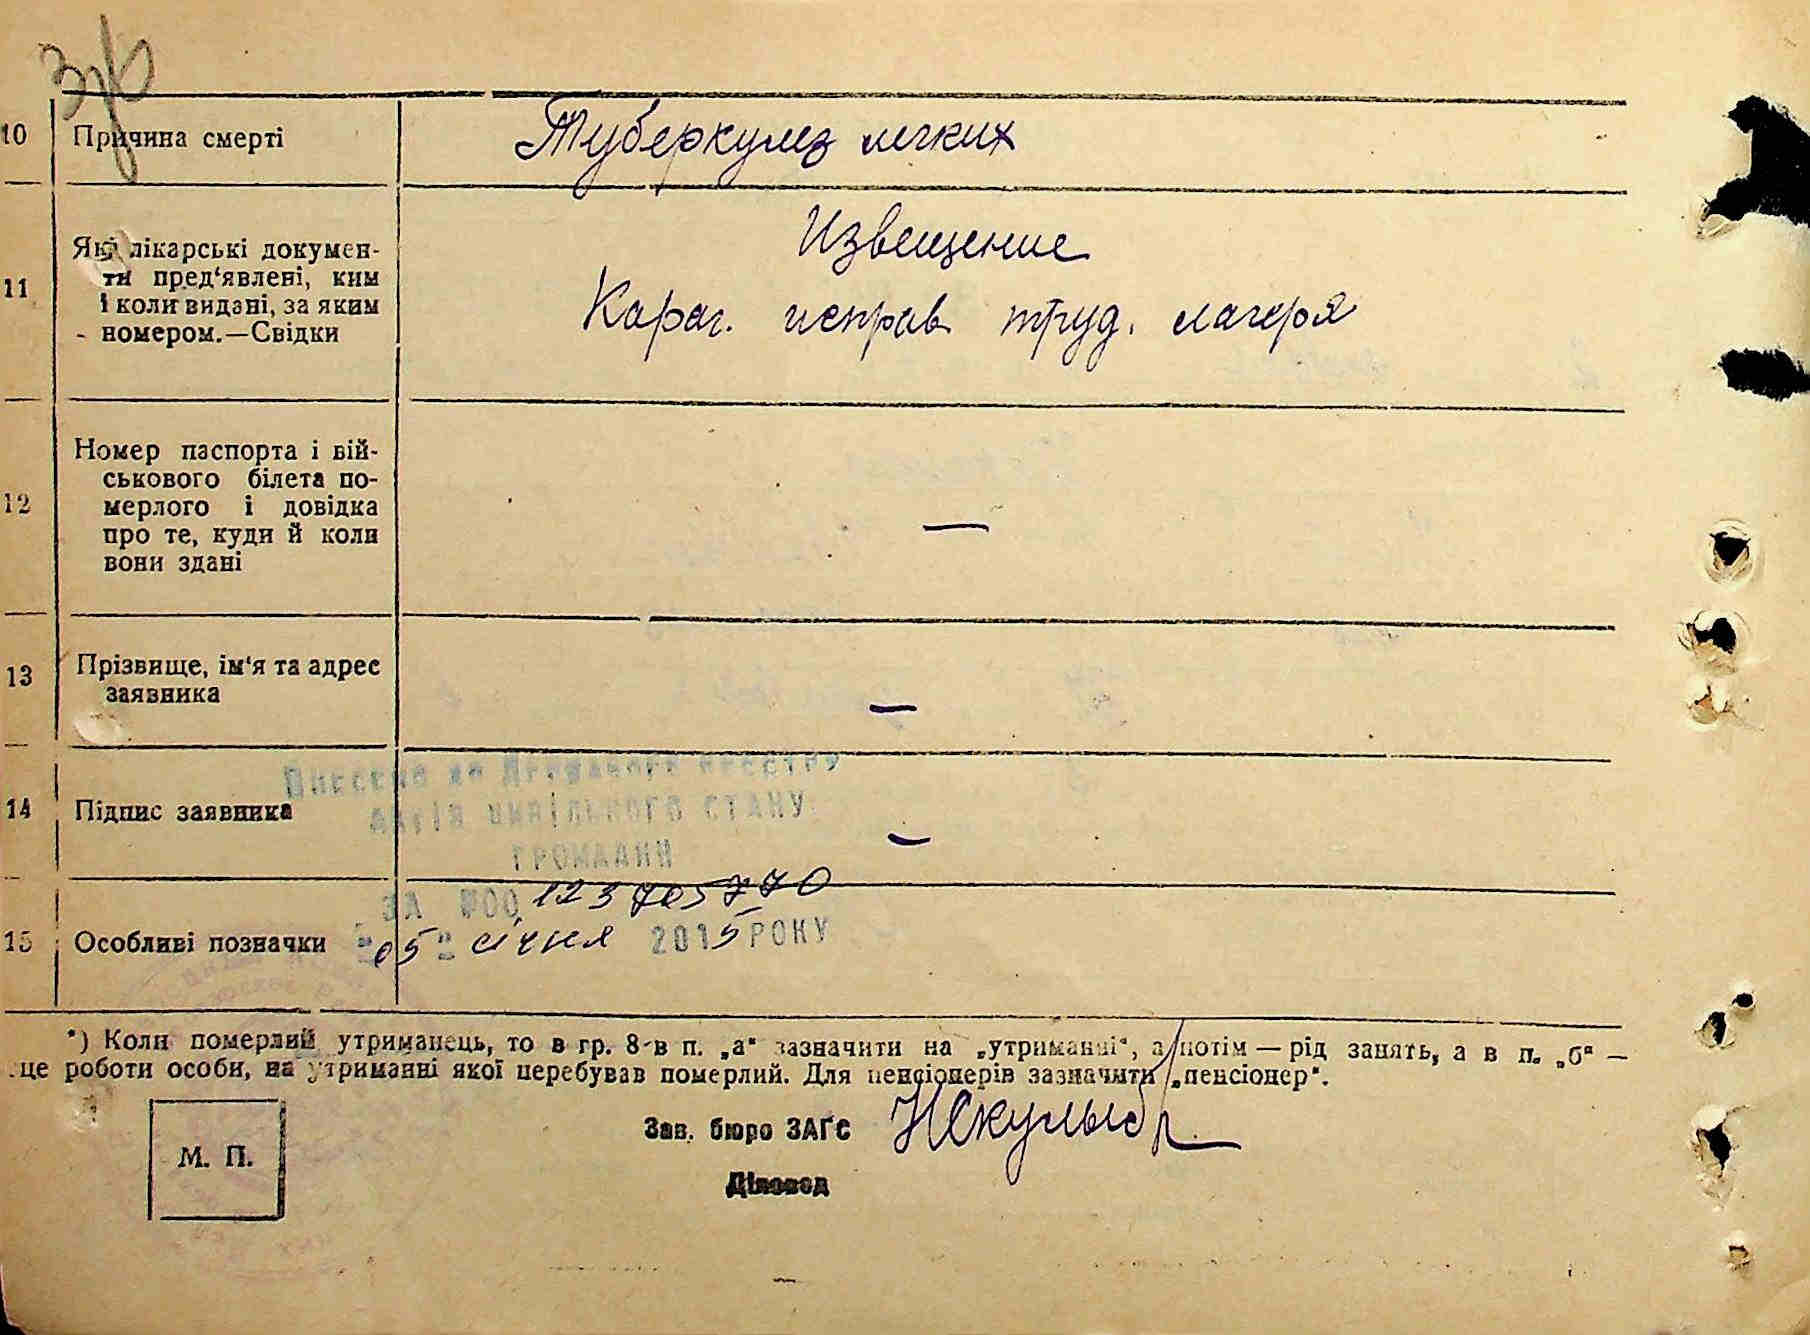 10 Причина смерті Туберкулез легких
11 Які лікарські докумен-
ти пред'явлені, ким
і коли видані, за яким
номером.—Свідки
Извещение
Караг. исправ. труд. лагеря
12 Номер паспорта і вій-
ськового білета по-
мерлого і довідка
про те, куди й коли
вони здані
—
13 Прізвище, ім'я та адрес
заявника
—
14 Підпис заявника —
Внесено до Державного реєстру
актів цивільного стану
громадян
ЗА №00123705770
15 Особливі позначки
"05" січня 2015 РОКУ
*) Коли померлий утриманець, то в гр. 8-в п. „а" зазначити на „утриманні", а потім — рід занять, а в п. „б" —
це роботи особи, на утриманні якої перебував померлий. Для пенсіонерів зазначити „пенсіонер".
М. П.
Зав. бюро ЗАГС
Діловод